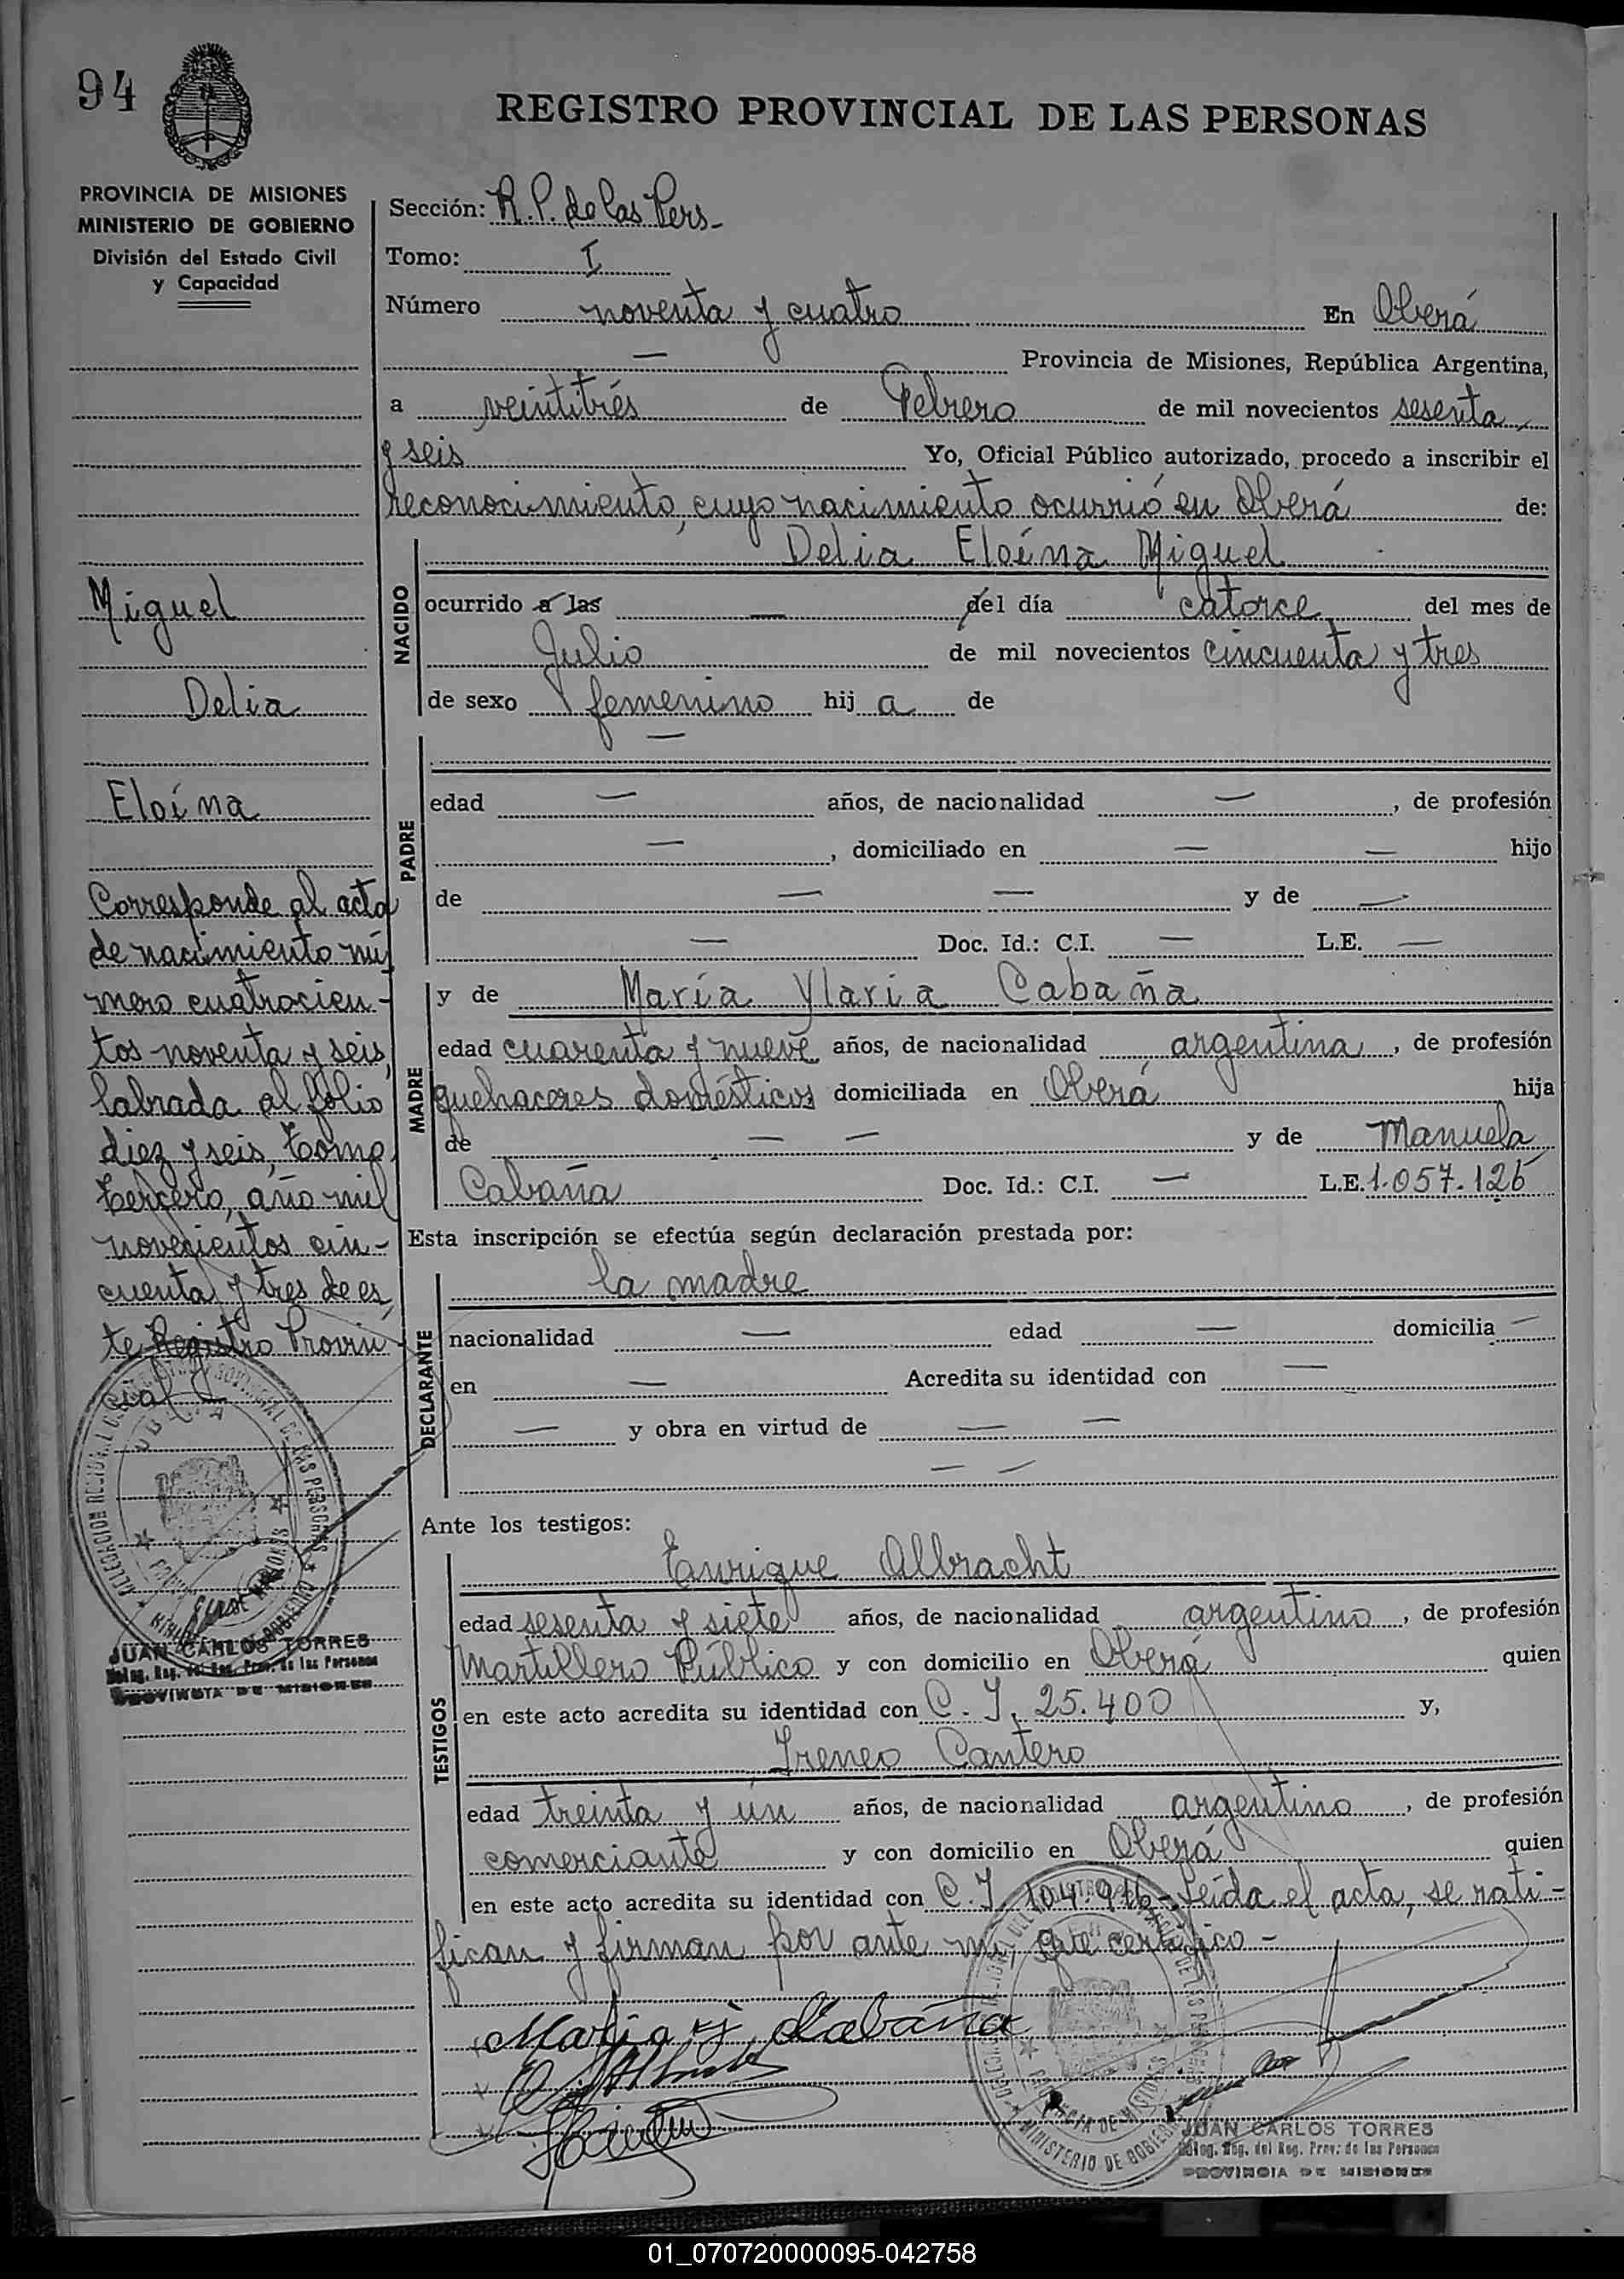 94
REGISTRO PROVINCIAL DE LAS PERSONAS
PROVINCIA DE MISIONES
MINISTERIO DE GOBIERNO
División del Estado Civil
y Capacidad
Sección: R.P. de las Pers-
Tomo: I
Número noventa y cuatro En Oberá
— Provincia de Misiones, República Argentina,
a veintitrés de Febrero de mil novecientos sesenta
y seis Yo, Oficial Público autorizado, procedo a inscribir el
reconocimiento, cuyo nacimiento ocurrió en Oberá de:
Delia Eloína Miguel
NACIDO
ocurrido a las — del día catorce del mes de
Julio de mil novecientos cincuenta y tres
de sexo femenino hij a de
—
PADRE
edad — años, de nacionalidad —, de profesión
—, domiciliado en — — hijo
de — — y de —
— Doc. Id.: C.I. — L.E. —
y de María Ylaria Cabaña
MADRE
edad cuarenta y nueve años, de nacionalidad argentina, de profesión
quehaceres domésticos domiciliada en Oberá hija
de — — y de Manuela
Cabaña Doc. Id.: C.I. — L.E. 1.057.125
Esta inscripción se efectúa según declaración prestada por:
la madre
DECLARANTE
nacionalidad — edad — domicilia —
en — Acredita su identidad con —
— y obra en virtud de — —
— —
Ante los testigos:
Enrique Albracht
TESTIGOS
edad sesenta y siete años, de nacionalidad argentino, de profesión
Martillero Público y con domicilio en Oberá quien
en este acto acredita su identidad con C.I. 25.400 y,
Ireneo Cantero
edad treinta y un años, de nacionalidad argentino, de profesión
comerciante y con domicilio en Oberá quien
en este acto acredita su identidad con C.I. 104.916- Leída el acta, se rati-
fican y firman por ante mi, que certifico-
Maria Y. Cabaña
JUAN CARLOS TORRES
Deleg. Reg. del Reg. Prov. de las Personas
PROVINCIA DE MISIONES
Miguel
Delia
Eloína
Corresponde al acta
de nacimiento nú
mero cuatrocien-
tos noventa y seis,
labrada al folio
diez y seis, Tomo
tercero, año mil
novecientos cin-
cuenta y tres de es
te Registro Provin
cial
JUAN CARLOS TORRES
Deleg. Reg. del Reg. Prov. de las Personas
PROVINCIA DE MISIONES
01_070720000095-042758